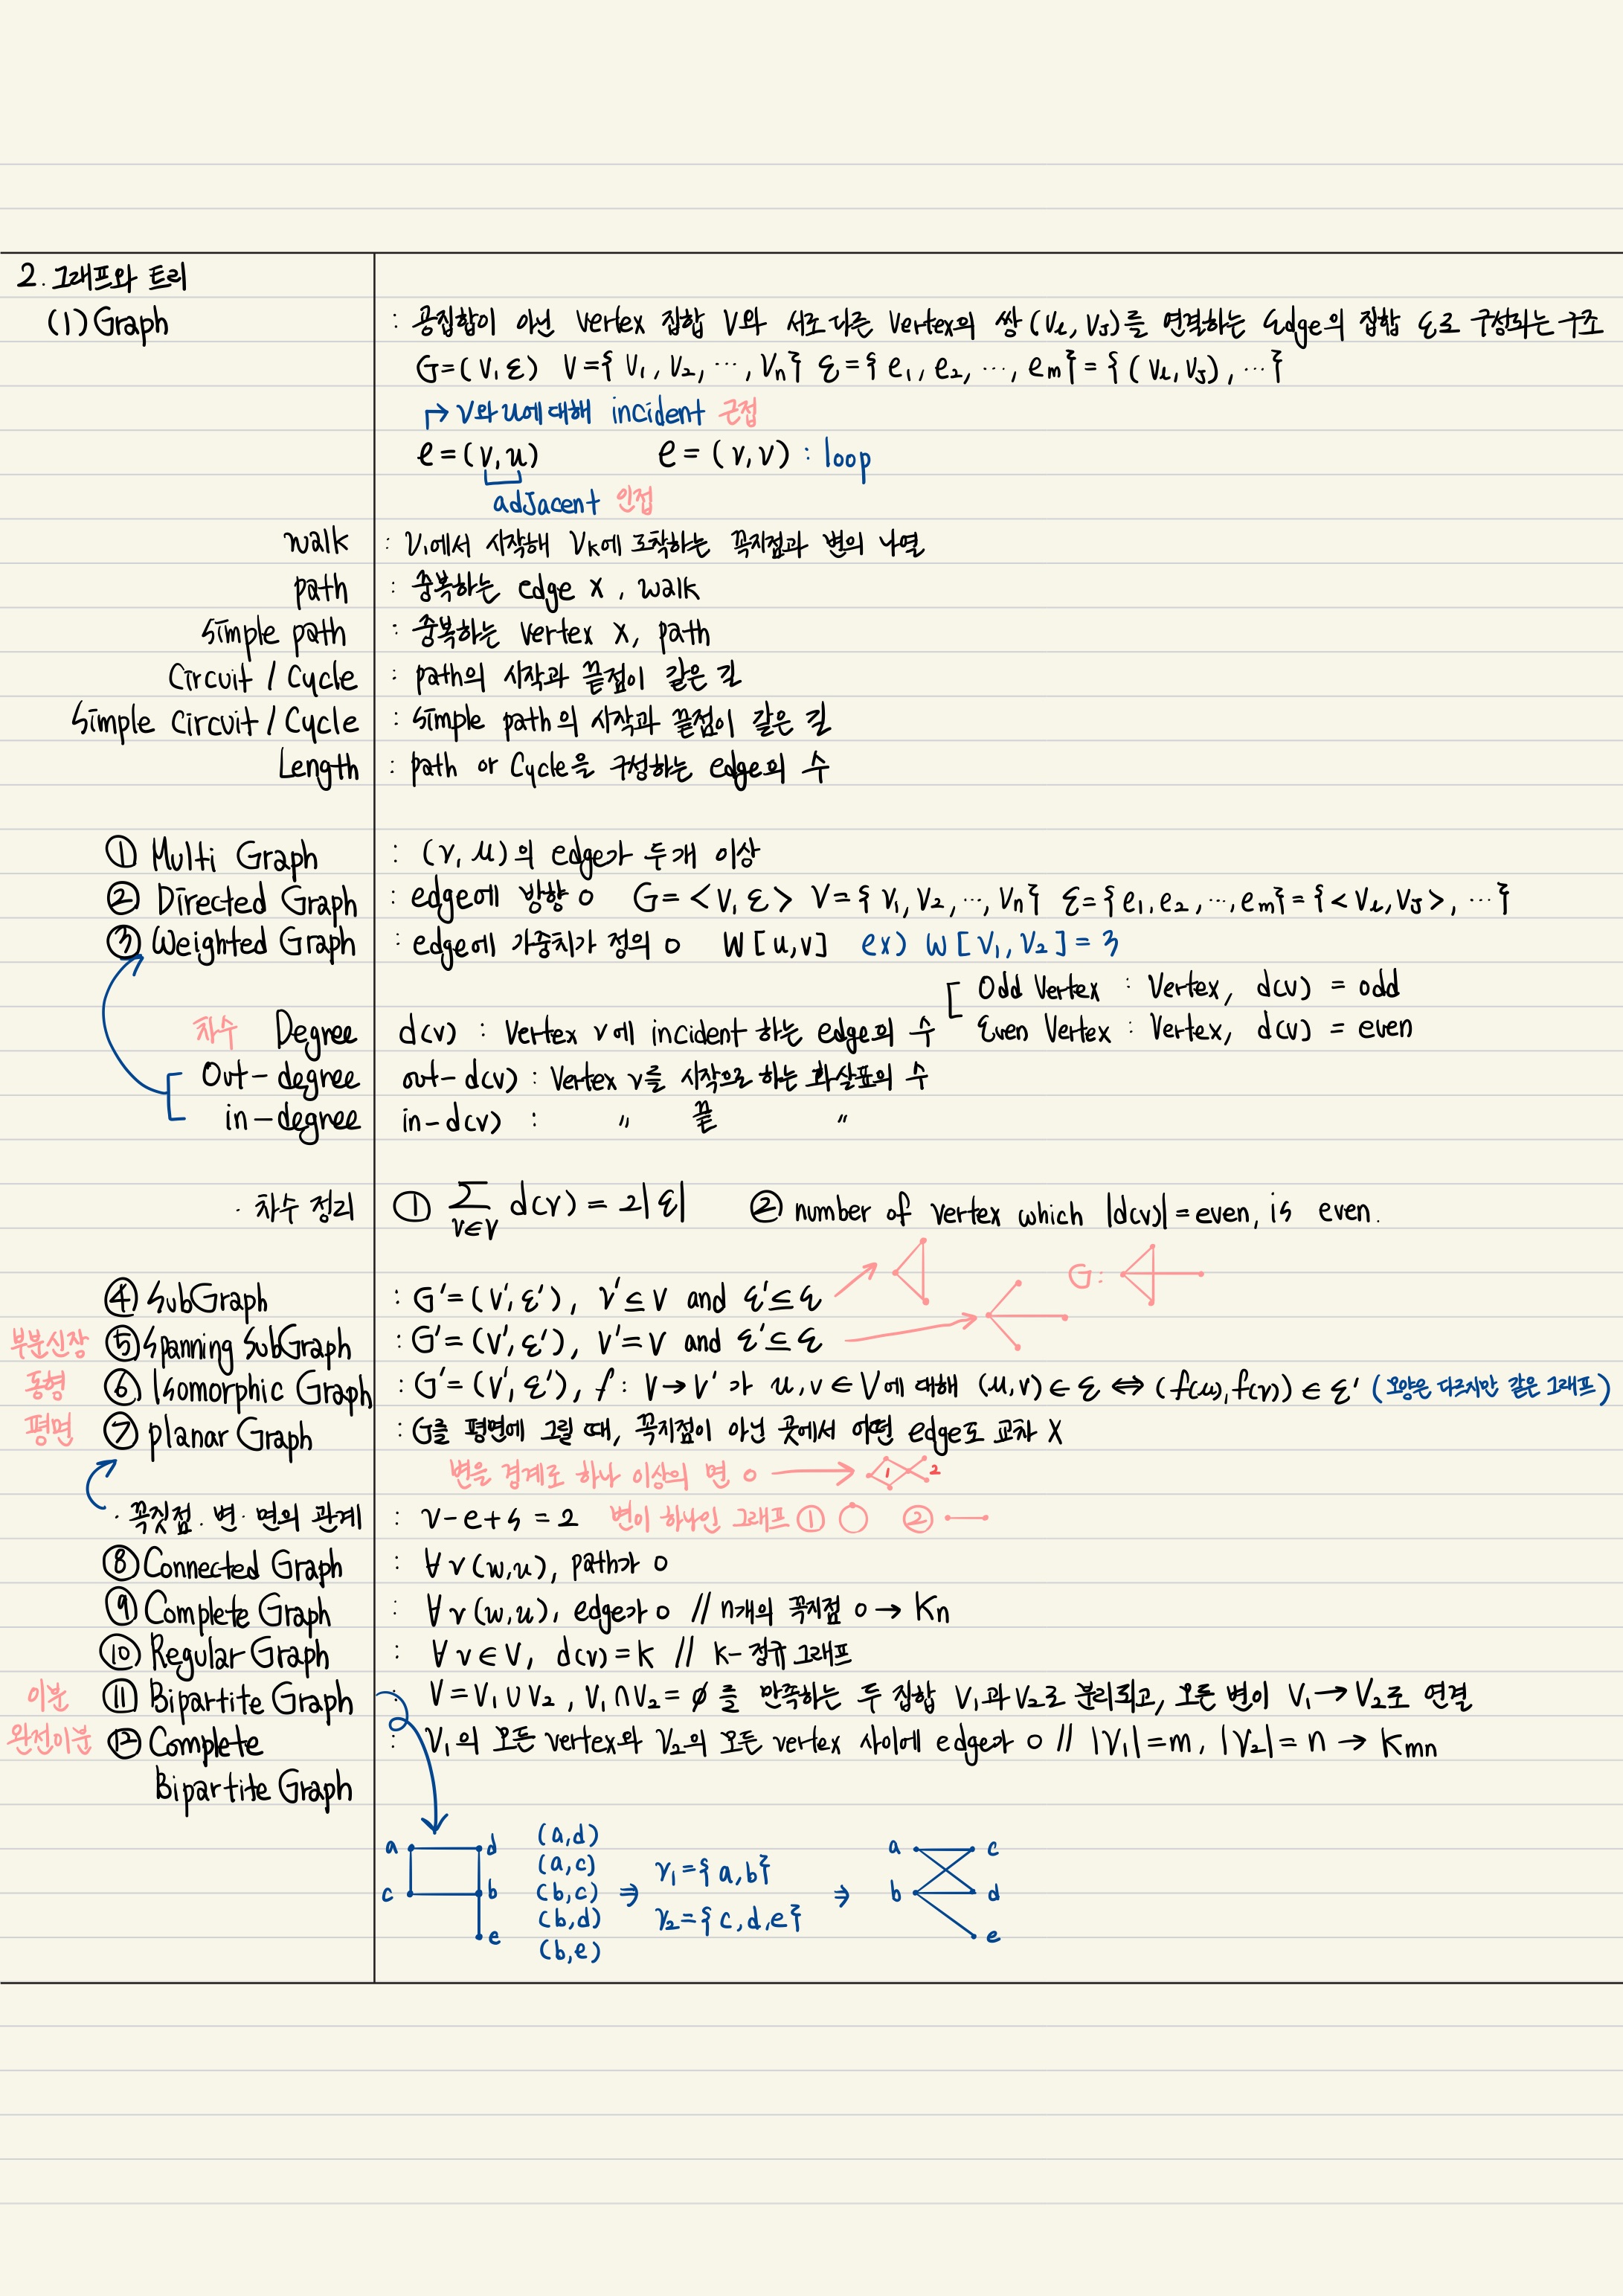 2. 그래프와 트리
(1) Graph : 공집합이 아닌 vertex 집합 V와 서로 다른 vertex의 쌍 (Vi, VJ)를 연결하는 Edge의 집합 ε로 구성되는 구조
G=(V, ε) V={V1, V2, ..., Vn} ε={e1, e2, ..., em}={(Vi, VJ), ...}
↱ V와 u에 대해 incident 근접
e=(v,u) e=(v,v) : loop
adjacent 인접
walk : V1에서 시작해 Vk에 도착하는 꼭지점과 변의 나열
path : 중복하는 edge X, walk
Simple path : 중복하는 vertex X, path
Circuit / Cycle : path의 시작과 끝점이 같은 길
Simple Circuit / Cycle : simple path의 시작과 끝점이 같은 길
Length : path or Cycle을 구성하는 edge의 수
① Multi Graph : (v, u)의 edge가 두개 이상
② Directed Graph : edge에 방향 O G=<V, ε> V={V1, V2, ..., Vn} ε={e1, e2, ..., em}={<Vi, VJ>, ...}
③ Weighted Graph : edge에 가중치가 정의 O W[u,v] ex) W[V1, V2]=3
Odd Vertex : Vertex, d(v) = odd
차수 Degree d(v) : Vertex v에 incident 하는 edge의 수 Even Vertex : Vertex, d(v) = even
Out-degree out-d(v) : Vertex v를 시작으로 하는 화살표의 수
in-degree in-d(v) : 〃 끝 〃
· 차수 정리 ① Σ v∈V d(v) = 2|ε| ② number of vertex which |d(v)| = even, is even.
G:
④ SubGraph : G'=(V', ε'), V'⊆V and ε'⊆ε
부분신장 ⑤ Spanning SubGraph : G'=(V', ε'), V'=V and ε'⊆ε
동형 ⑥ Isomorphic Graph : G'=(V', ε'), f: V→V'가 u,v∈V에 대해 (u,v)∈ε ⇔ (f(u),f(v))∈ε' (모양은 다르지만 같은 그래프)
평면 ⑦ planar Graph : G를 평면에 그릴 때, 꼭지점이 아닌 곳에서 어떤 edge도 교차 X
변을 경계로 하나 이상의 면 O → 1 2
· 꼭짓점·변·면의 관계 : v-e+s=2 변이 하나인 그래프 ① ②
⑧ Connected Graph : ∀v(w,u), path가 O
⑨ Complete Graph : ∀v(w,u), edge가 O // n개의 꼭지점 O → Kn
⑩ Regular Graph : ∀v∈V, d(v)=k // k-정규 그래프
이분 ⑪ Bipartite Graph : V=V1∪V2, V1∩V2=∅를 만족하는 두 집합 V1과 V2로 분리되고, 모든 변이 V1→V2로 연결
완전이분 ⑫ Complete : V1의 모든 vertex와 V2의 모든 vertex 사이에 edge가 O // |V1|=m, |V2|=n → Kmn
Bipartite Graph
a d (a,d) a c
(a,c) V1={a,b}
c b (b,c) ⇒ ⇒ b d
(b,d) V2={c,d,e}
e (b,e) e